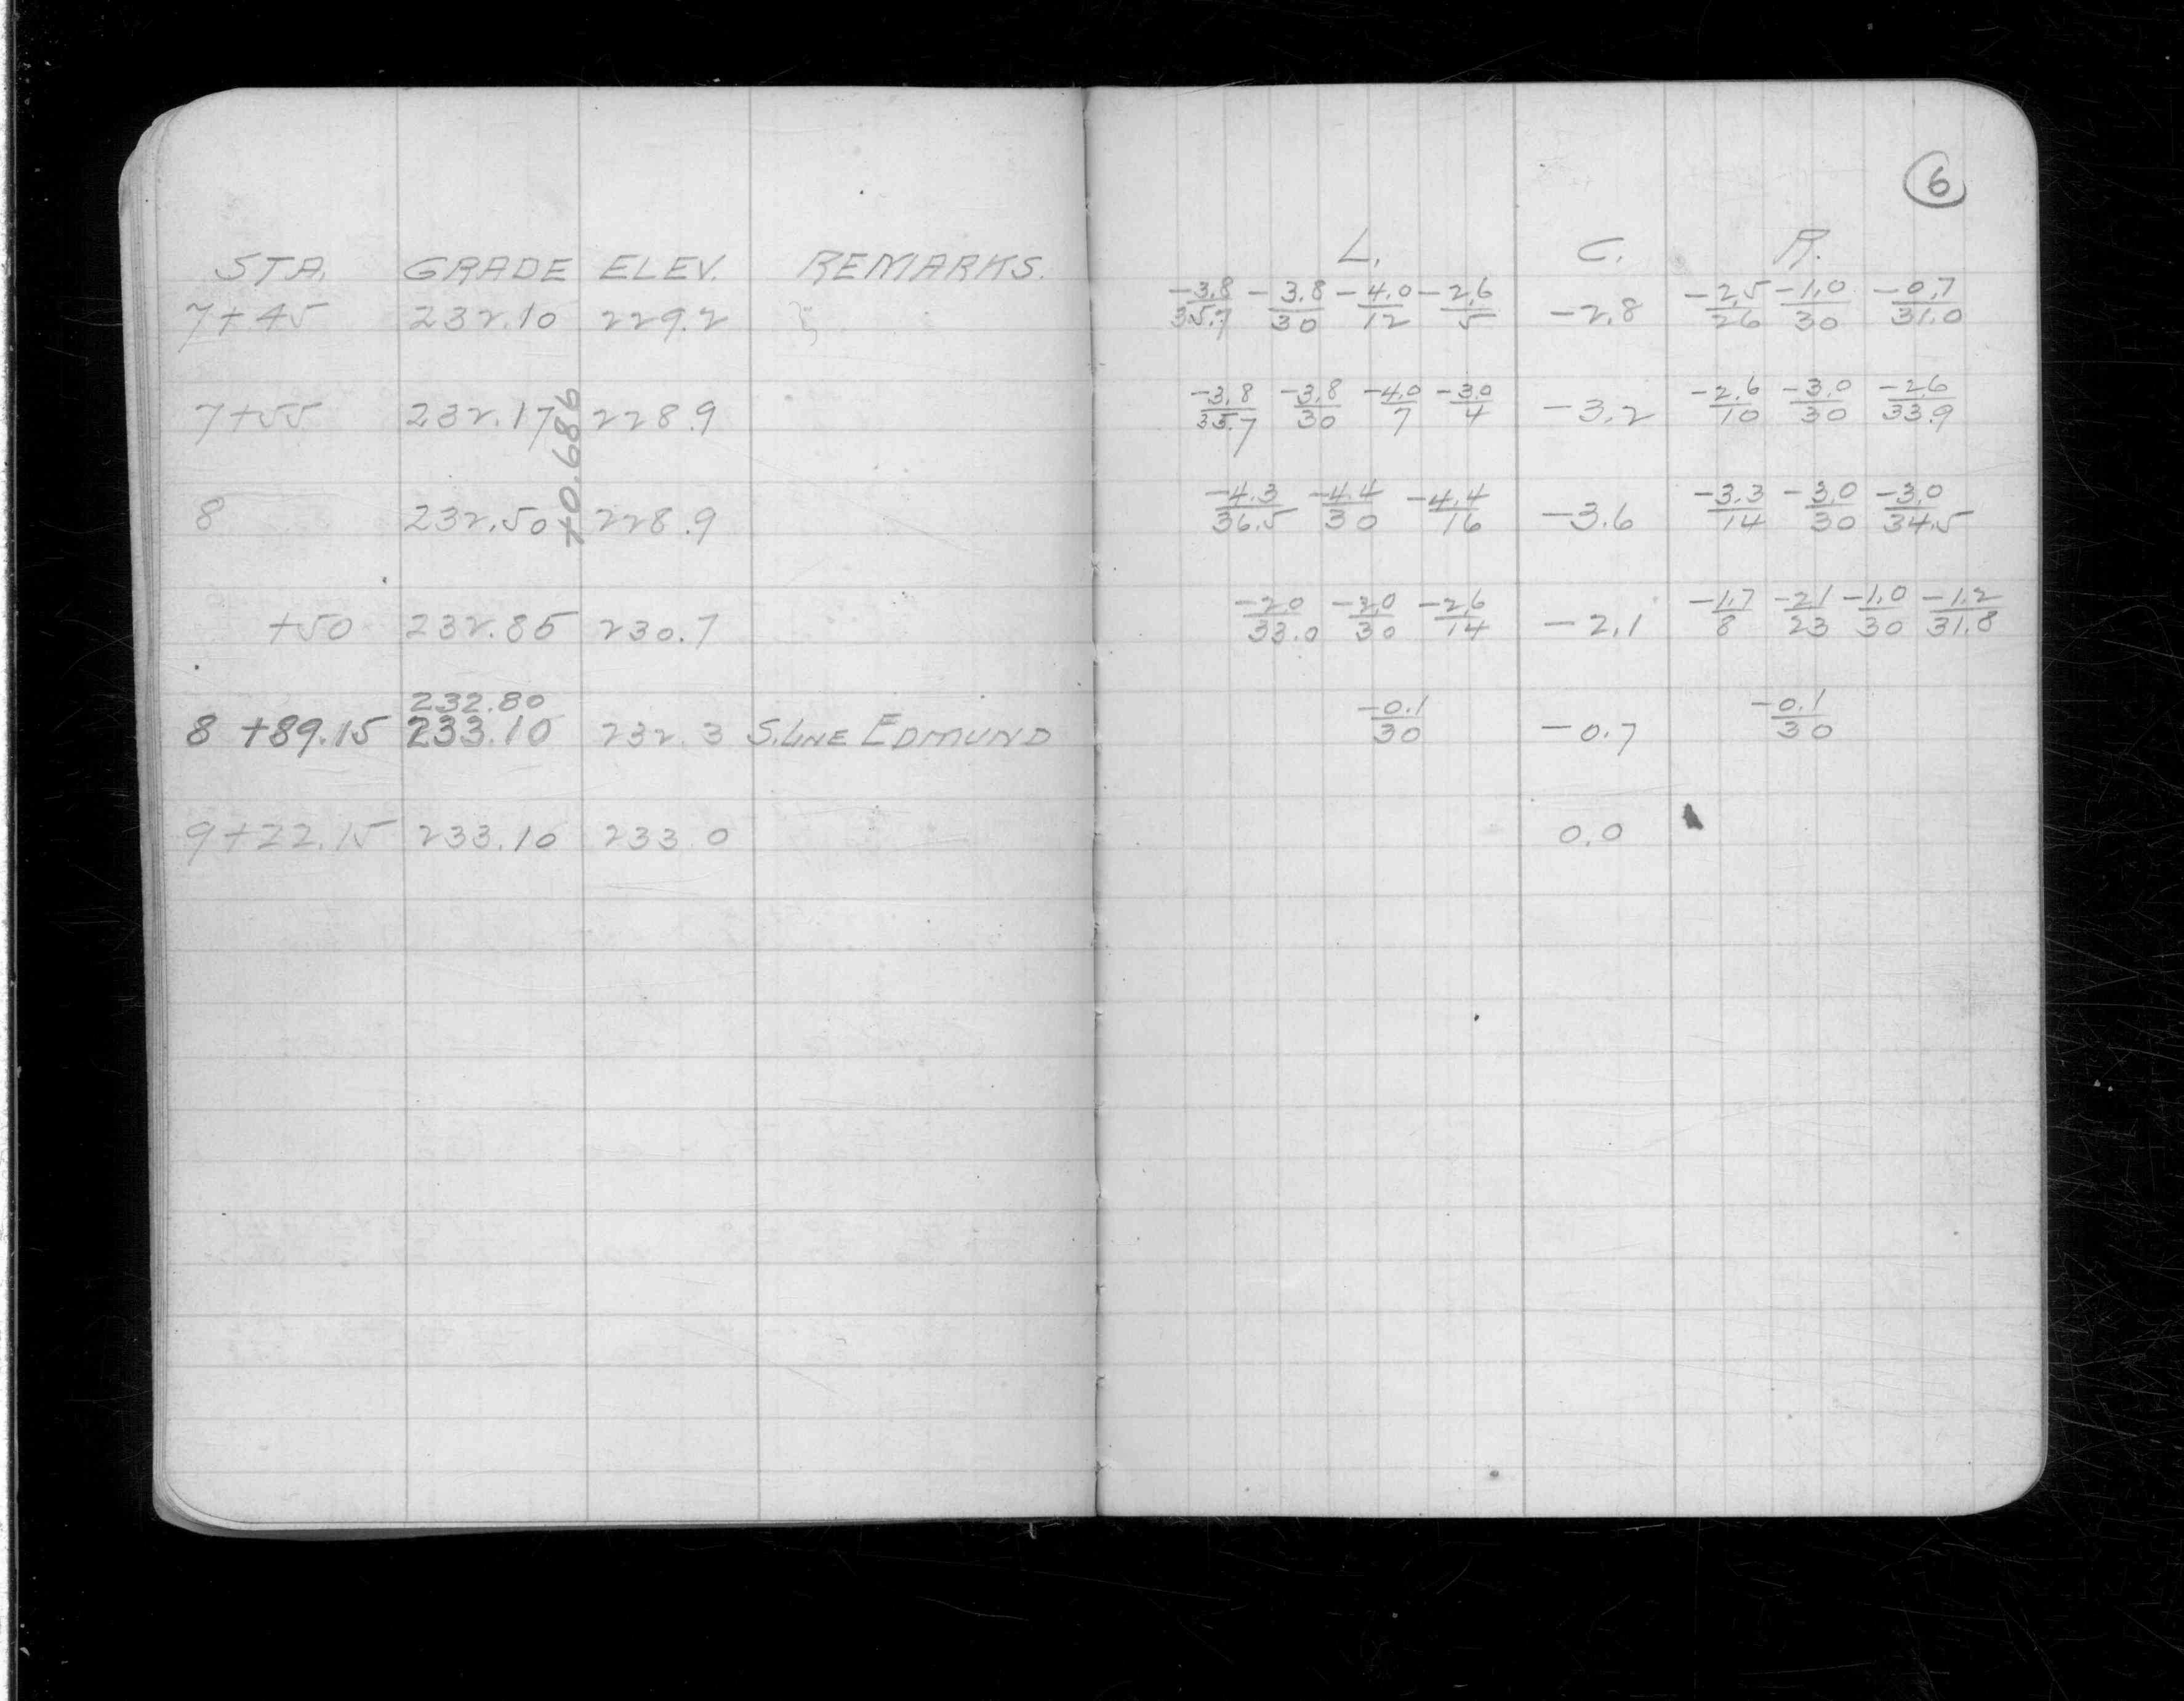 6
STA. GRADE ELEV. REMARKS. L. C. R.
7+45 232.10 229.2 -3.8/35.7 -3.8/30 -4.0/12 -2.6/5 -2.8 -2.5/26 -1.0/30 -0.7/31.0
7+55 232.17 228.9 -3.8/35.7 -3.8/30 -4.0/7 -3.0/4 -3.2 -2.6/10 -3.0/30 -2.6/33.9
+0.686
8 232.50 228.9 -4.3/36.5 -4.4/30 -4.4/16 -3.6 -3.3/14 -3.0/30 -3.0/34.5
+50 232.85 230.7 -2.0/33.0 -2.0/30 -2.6/14 -2.1 -1.7/8 -2.1/23 -1.0/30 -1.2/31.8
232.80
8 +89.15 233.10 232.3 S. LINE EDMUND -0.1/30 -0.7 -0.1/30
9+22.15 233.10 233.0 0.0